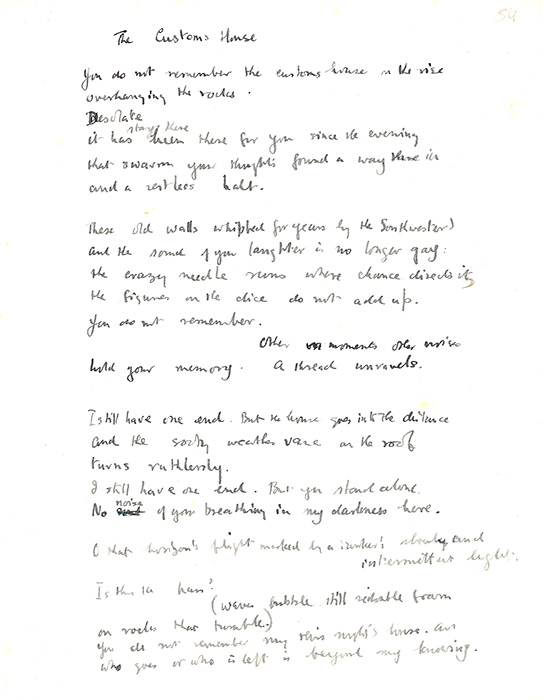 54
The Customs House
You do not remember the customs house on the rise
overhanging the rocks.
Desolate
stays there
it has been there for you since the evening
that swarm your thoughts found a way there in
and a restless halt.
These old walls whipped for years by the Southwester
and the sound of your laughter is no longer gay:
the crazy needle runs where chance directs it,
the figures on the dice do not add up.
You do not remember.
Other moments other noise
hold your memory. A thread unravels.
I still have one end. But the house goes into the distance
and the sooty weather vane on the roof
turns ruthlessly.
I still have one end. But you stand alone.
noise
No of your breathing in my darkness here.
O that horizon's flight marked by a tanker's slowly and
intermittent light.
Is this the pass?
(waves bubble still foam
on rocks that tumble.)
You do not remember my this night's house. and
who goes or who is left is beyond my knowing.